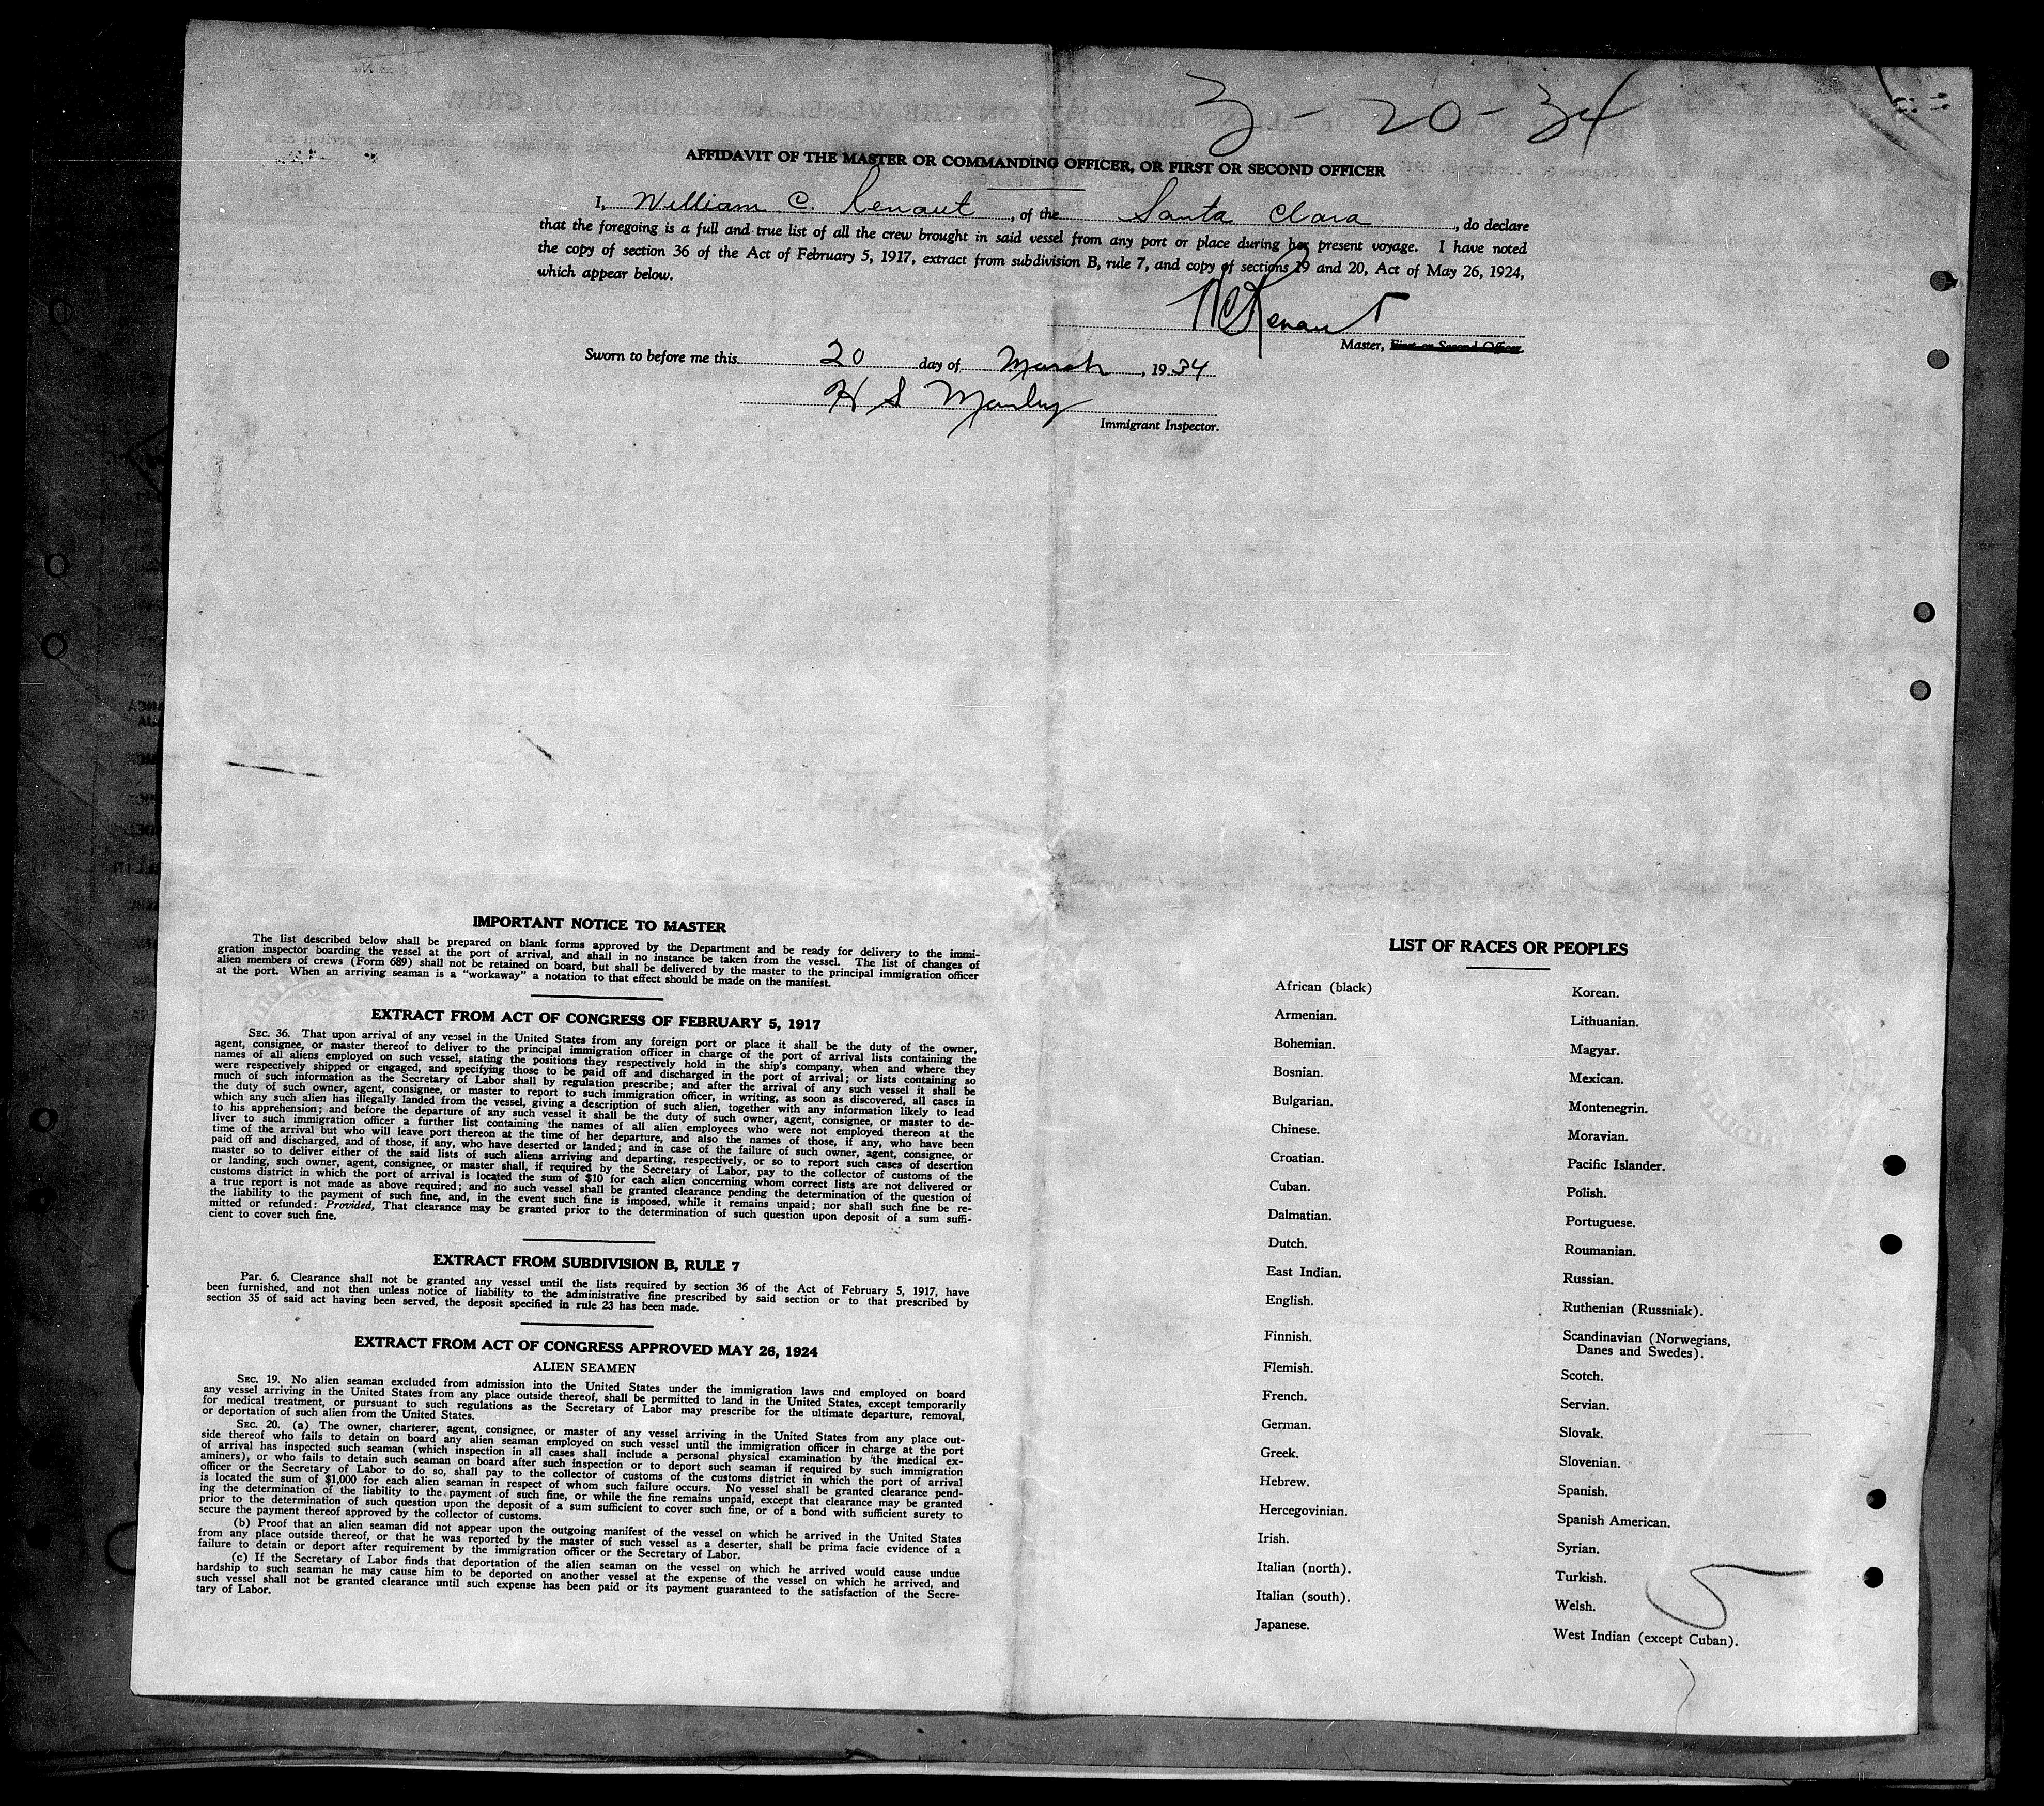 3-20-34
AFFIDAVIT OF THE MASTER OR COMMANDING OFFICER, OR FIRST OR SECOND OFFICER
I, William C. Renaut, of the Santa Clara, do declare
that the foregoing is a full and true list of all the crew brought in said vessel from any port or place during her present voyage. I have noted
the copy of section 36 of the Act of February 5, 1917, extract from subdivision B, rule 7, and copy of sections 19 and 20, Act of May 26, 1924,
which appear below.
WCRenaut
Master, First or Second Officer.
Sworn to before me this 20 day of March, 1934
H S Manley
Immigrant Inspector.
IMPORTANT NOTICE TO MASTER
The list described below shall be prepared on blank forms approved by the Department and be ready for delivery to the immi-
gration inspector boarding the vessel at the port of arrival, and shall in no instance be taken from the vessel. The list of changes of
alien members of crews (Form 689) shall not be retained on board, but shall be delivered by the master to the principal immigration officer
at the port. When an arriving seaman is a "workaway" a notation to that effect should be made on the manifest.
EXTRACT FROM ACT OF CONGRESS OF FEBRUARY 5, 1917
SEC. 36. That upon arrival of any vessel in the United States from any foreign port or place it shall be the duty of the owner,
agent, consignee, or master thereof to deliver to the principal immigration officer in charge of the port of arrival lists containing the
names of all aliens employed on such vessel, stating the positions they respectively hold in the ship's company, when and where they
were respectively shipped or engaged, and specifying those to be paid off and discharged in the port of arrival; or lists containing so
much of such information as the Secretary of Labor shall by regulation prescribe; and after the arrival of any such vessel it shall be
the duty of such owner, agent, consignee, or master to report to such immigration officer, in writing, as soon as discovered, all cases in
which any such alien has illegally landed from the vessel, giving a description of such alien, together with any information likely to lead
to his apprehension; and before the departure of any such vessel it shall be the duty of such owner, agent, consignee, or master to de-
liver to such immigration officer a further list containing the names of all alien employees who were not employed thereon at the
time of the arrival but who will leave port thereon at the time of her departure, and also the names of those, if any, who have been
paid off and discharged, and of those, if any, who have deserted or landed; and in case of the failure of such owner, agent, consignee, or
master so to deliver either of the said lists of such aliens arriving and departing, respectively, or so to report such cases of desertion
or landing, such owner, agent, consignee, or master shall, if required by the Secretary of Labor, pay to the collector of customs of the
customs district in which the port of arrival is located the sum of $10 for each alien concerning whom correct lists are not delivered or
a true report is not made as above required; and no such vessel shall be granted clearance pending the determination of the question of
the liability to the payment of such fine, and, in the event such fine is imposed, while it remains unpaid; nor shall such fine be re-
mitted or refunded: Provided, That clearance may be granted prior to the determination of such question upon deposit of a sum suffi-
cient to cover such fine.
EXTRACT FROM SUBDIVISION B, RULE 7
Par. 6. Clearance shall not be granted any vessel until the lists required by section 36 of the Act of February 5, 1917, have
been furnished, and not then unless notice of liability to the administrative fine prescribed by said section or to that prescribed by
section 35 of said act having been served, the deposit specified in rule 23 has been made.
EXTRACT FROM ACT OF CONGRESS APPROVED MAY 26, 1924
ALIEN SEAMEN
SEC. 19. No alien seaman excluded from admission into the United States under the immigration laws and employed on board
any vessel arriving in the United States from any place outside thereof, shall be permitted to land in the United States, except temporarily
for medical treatment, or pursuant to such regulations as the Secretary of Labor may prescribe for the ultimate departure, removal,
or deportation of such alien from the United States.
SEC. 20. (a) The owner, charterer, agent, consignee, or master of any vessel arriving in the United States from any place out-
side thereof who fails to detain on board any alien seaman employed on such vessel until the immigration officer in charge at the port
of arrival has inspected such seaman (which inspection in all cases shall include a personal physical examination by the medical ex-
aminers), or who fails to detain such seaman on board after such inspection or to deport such seaman if required by such immigration
officer or the Secretary of Labor to do so, shall pay to the collector of customs of the customs district in which the port of arrival
is located the sum of $1,000 for each alien seaman in respect of whom such failure occurs. No vessel shall be granted clearance pend-
ing the determination of the liability to the payment of such fine, or while the fine remains unpaid, except that clearance may be granted
prior to the determination of such question upon the deposit of a sum sufficient to cover such fine, or of a bond with sufficient surety to
secure the payment thereof approved by the collector of customs.
(b) Proof that an alien seaman did not appear upon the outgoing manifest of the vessel on which he arrived in the United States
from any place outside thereof, or that he was reported by the master of such vessel as a deserter, shall be prima facie evidence of a
failure to detain or deport after requirement by the immigration officer or the Secretary of Labor.
(c) If the Secretary of Labor finds that deportation of the alien seaman on the vessel on which he arrived would cause undue
hardship to such seaman he may cause him to be deported on another vessel at the expense of the vessel on which he arrived, and
such vessel shall not be granted clearance until such expense has been paid or its payment guaranteed to the satisfaction of the Secre-
tary of Labor.
LIST OF RACES OR PEOPLES
African (black)
Armenian.
Bohemian.
Bosnian.
Bulgarian.
Chinese.
Croatian.
Cuban.
Dalmatian.
Dutch.
East Indian.
English.
Finnish.
Flemish.
French.
German.
Greek.
Hebrew.
Hercegovinian.
Irish.
Italian (north).
Italian (south).
Japanese.
Korean.
Lithuanian.
Magyar.
Mexican.
Montenegrin.
Moravian.
Pacific Islander.
Polish.
Portuguese.
Roumanian.
Russian.
Ruthenian (Russniak).
Scandinavian (Norwegians,
Danes and Swedes).
Scotch.
Servian.
Slovak.
Slovenian.
Spanish.
Spanish American.
Syrian.
Turkish.
Welsh.
West Indian (except Cuban).
5